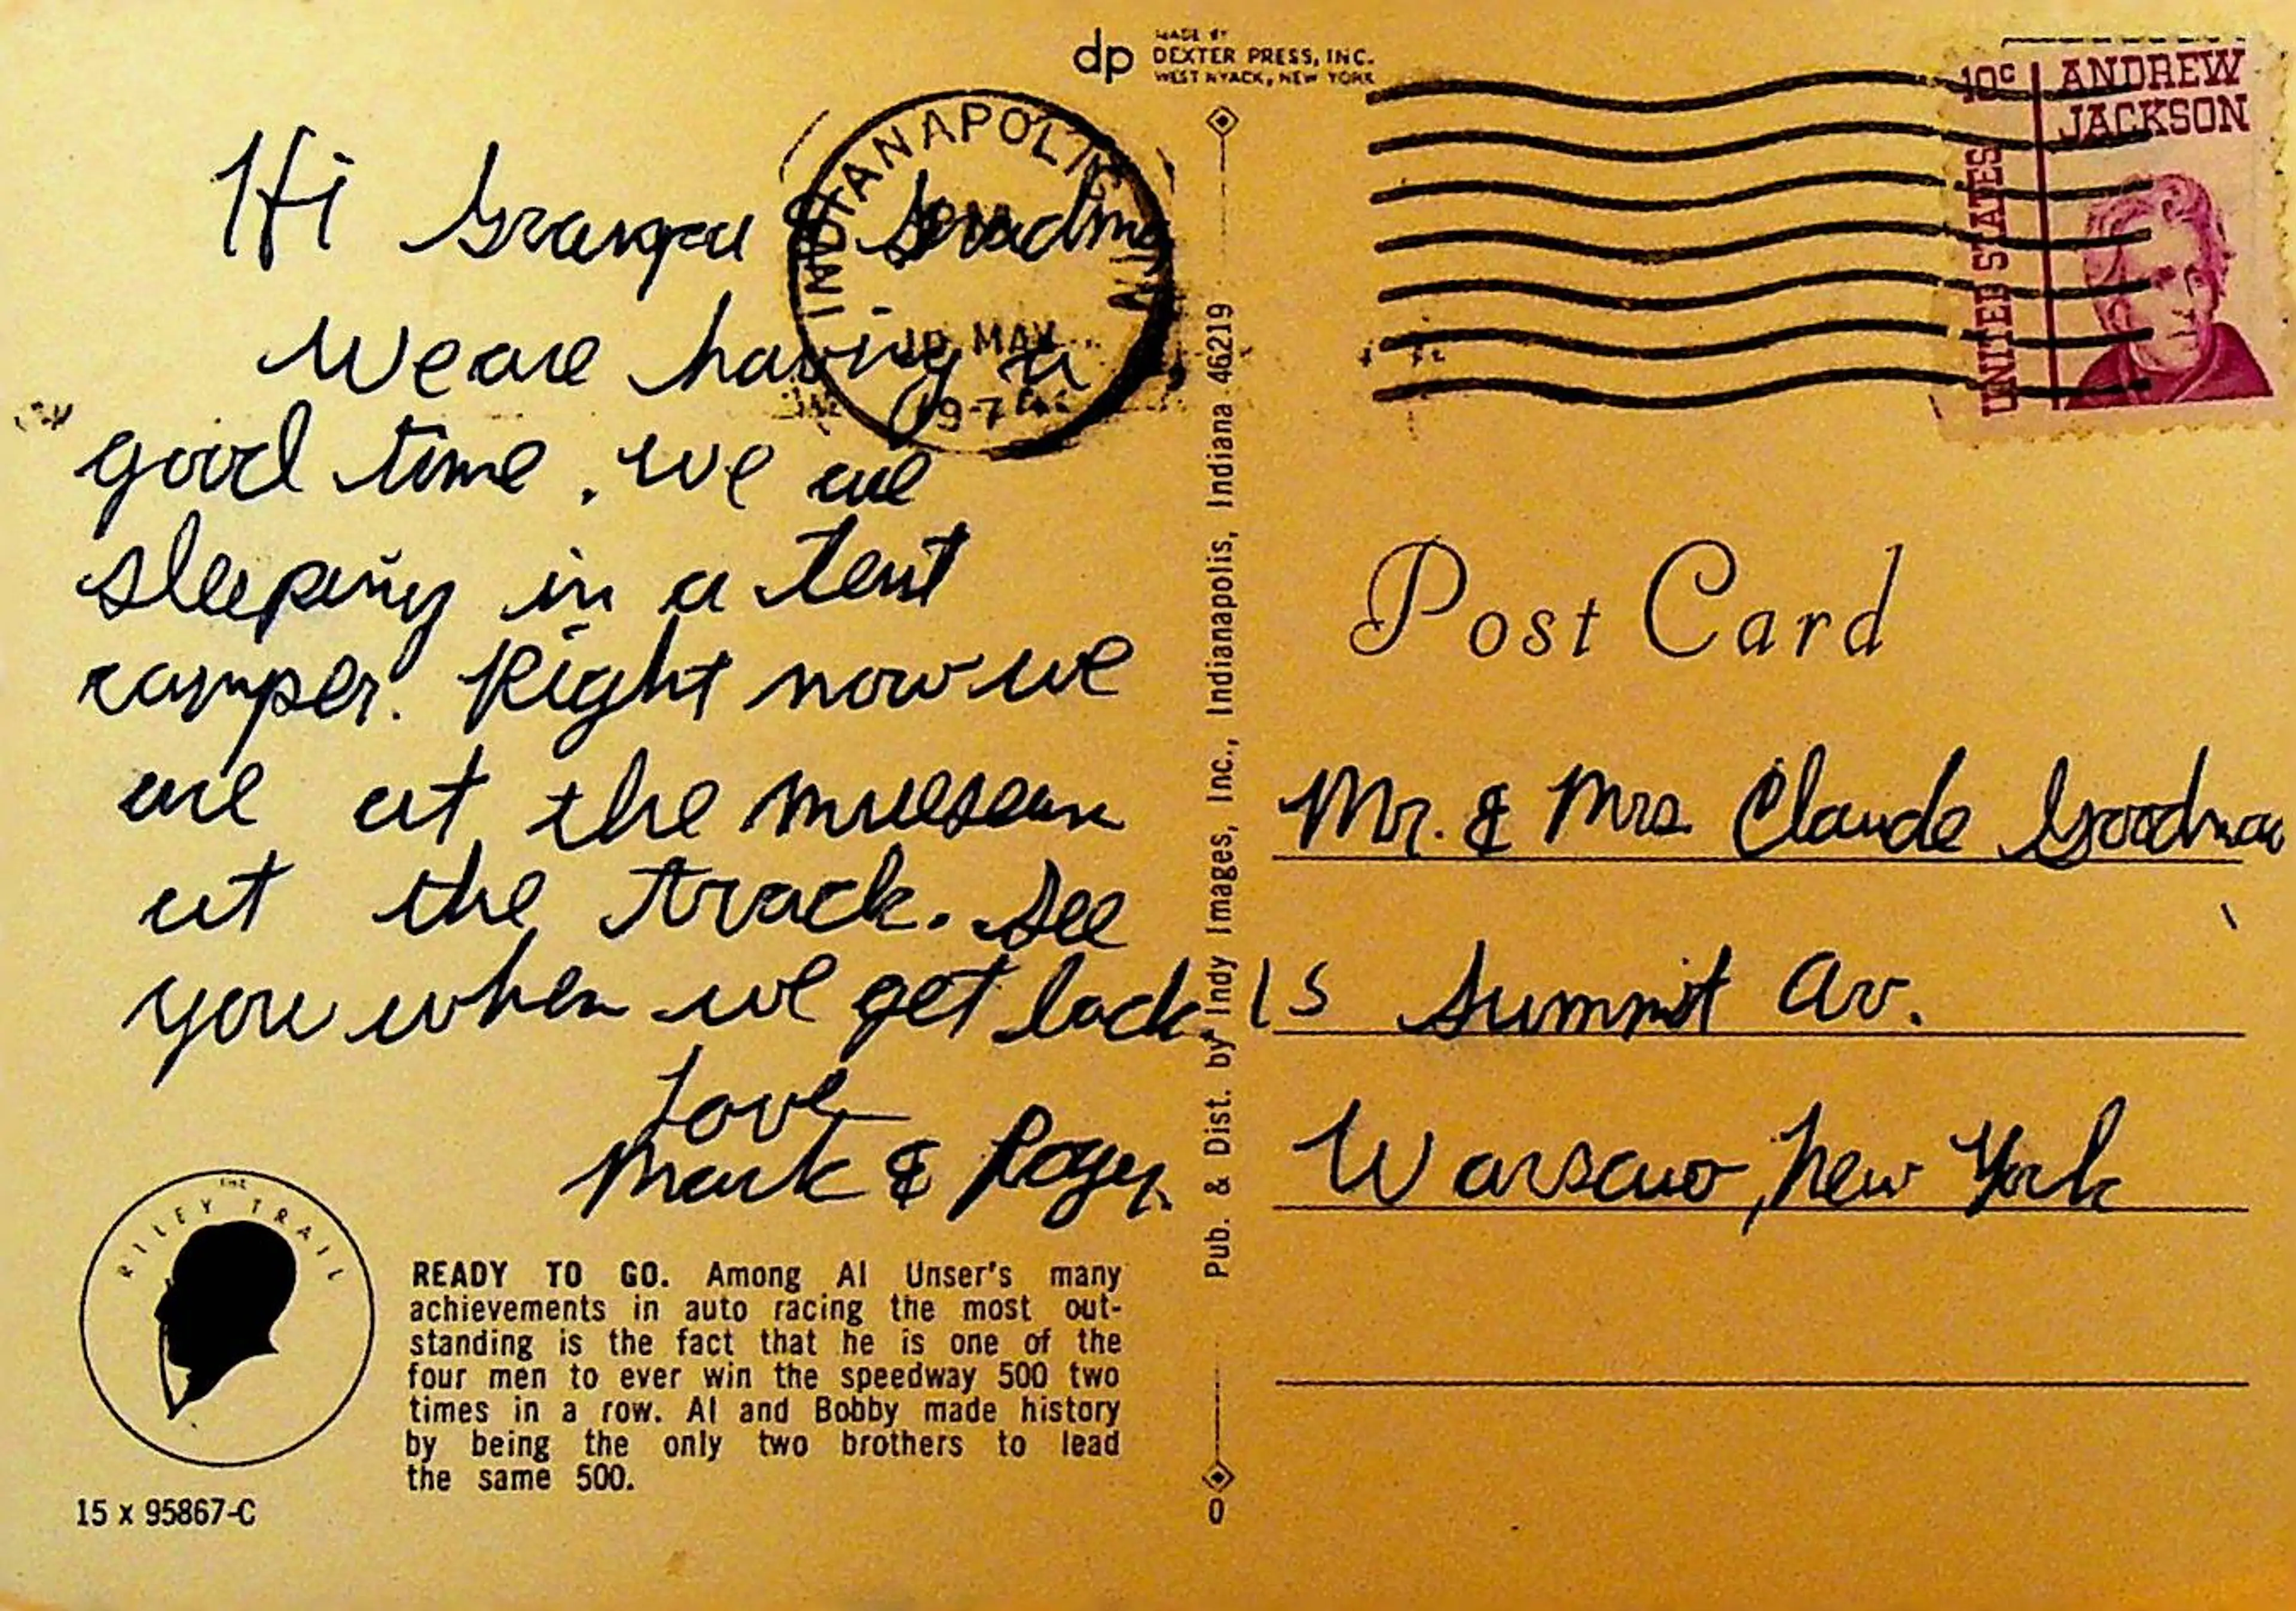 dp
MADE BY
DEXTER PRESS, INC.
WEST NYACK, NEW YORK
INDIANAPOLIS
MAY
10¢
ANDREW
JACKSON
UNITED STATES
Hi Granpa & Grandma
We are having a
good time. we are
sleeping in a tent
camper. Right now we
are at the museam
at the track. See
you when we get back.
Love
Mark & Roger
Pub. & Dist. by Indy Images, Inc., Indianapolis, Indiana 46219
0
Post Card
Mr. & Mrs. Claude Goodman
15 Summit Av.
Warsaw, New York
THE
RILEY TRAIL
READY TO GO. Among Al Unser's many
achievements in auto racing the most out-
standing is the fact that he is one of the
four men to ever win the speedway 500 two
times in a row. Al and Bobby made history
by being the only two brothers to lead
the same 500.
15 x 95867-C